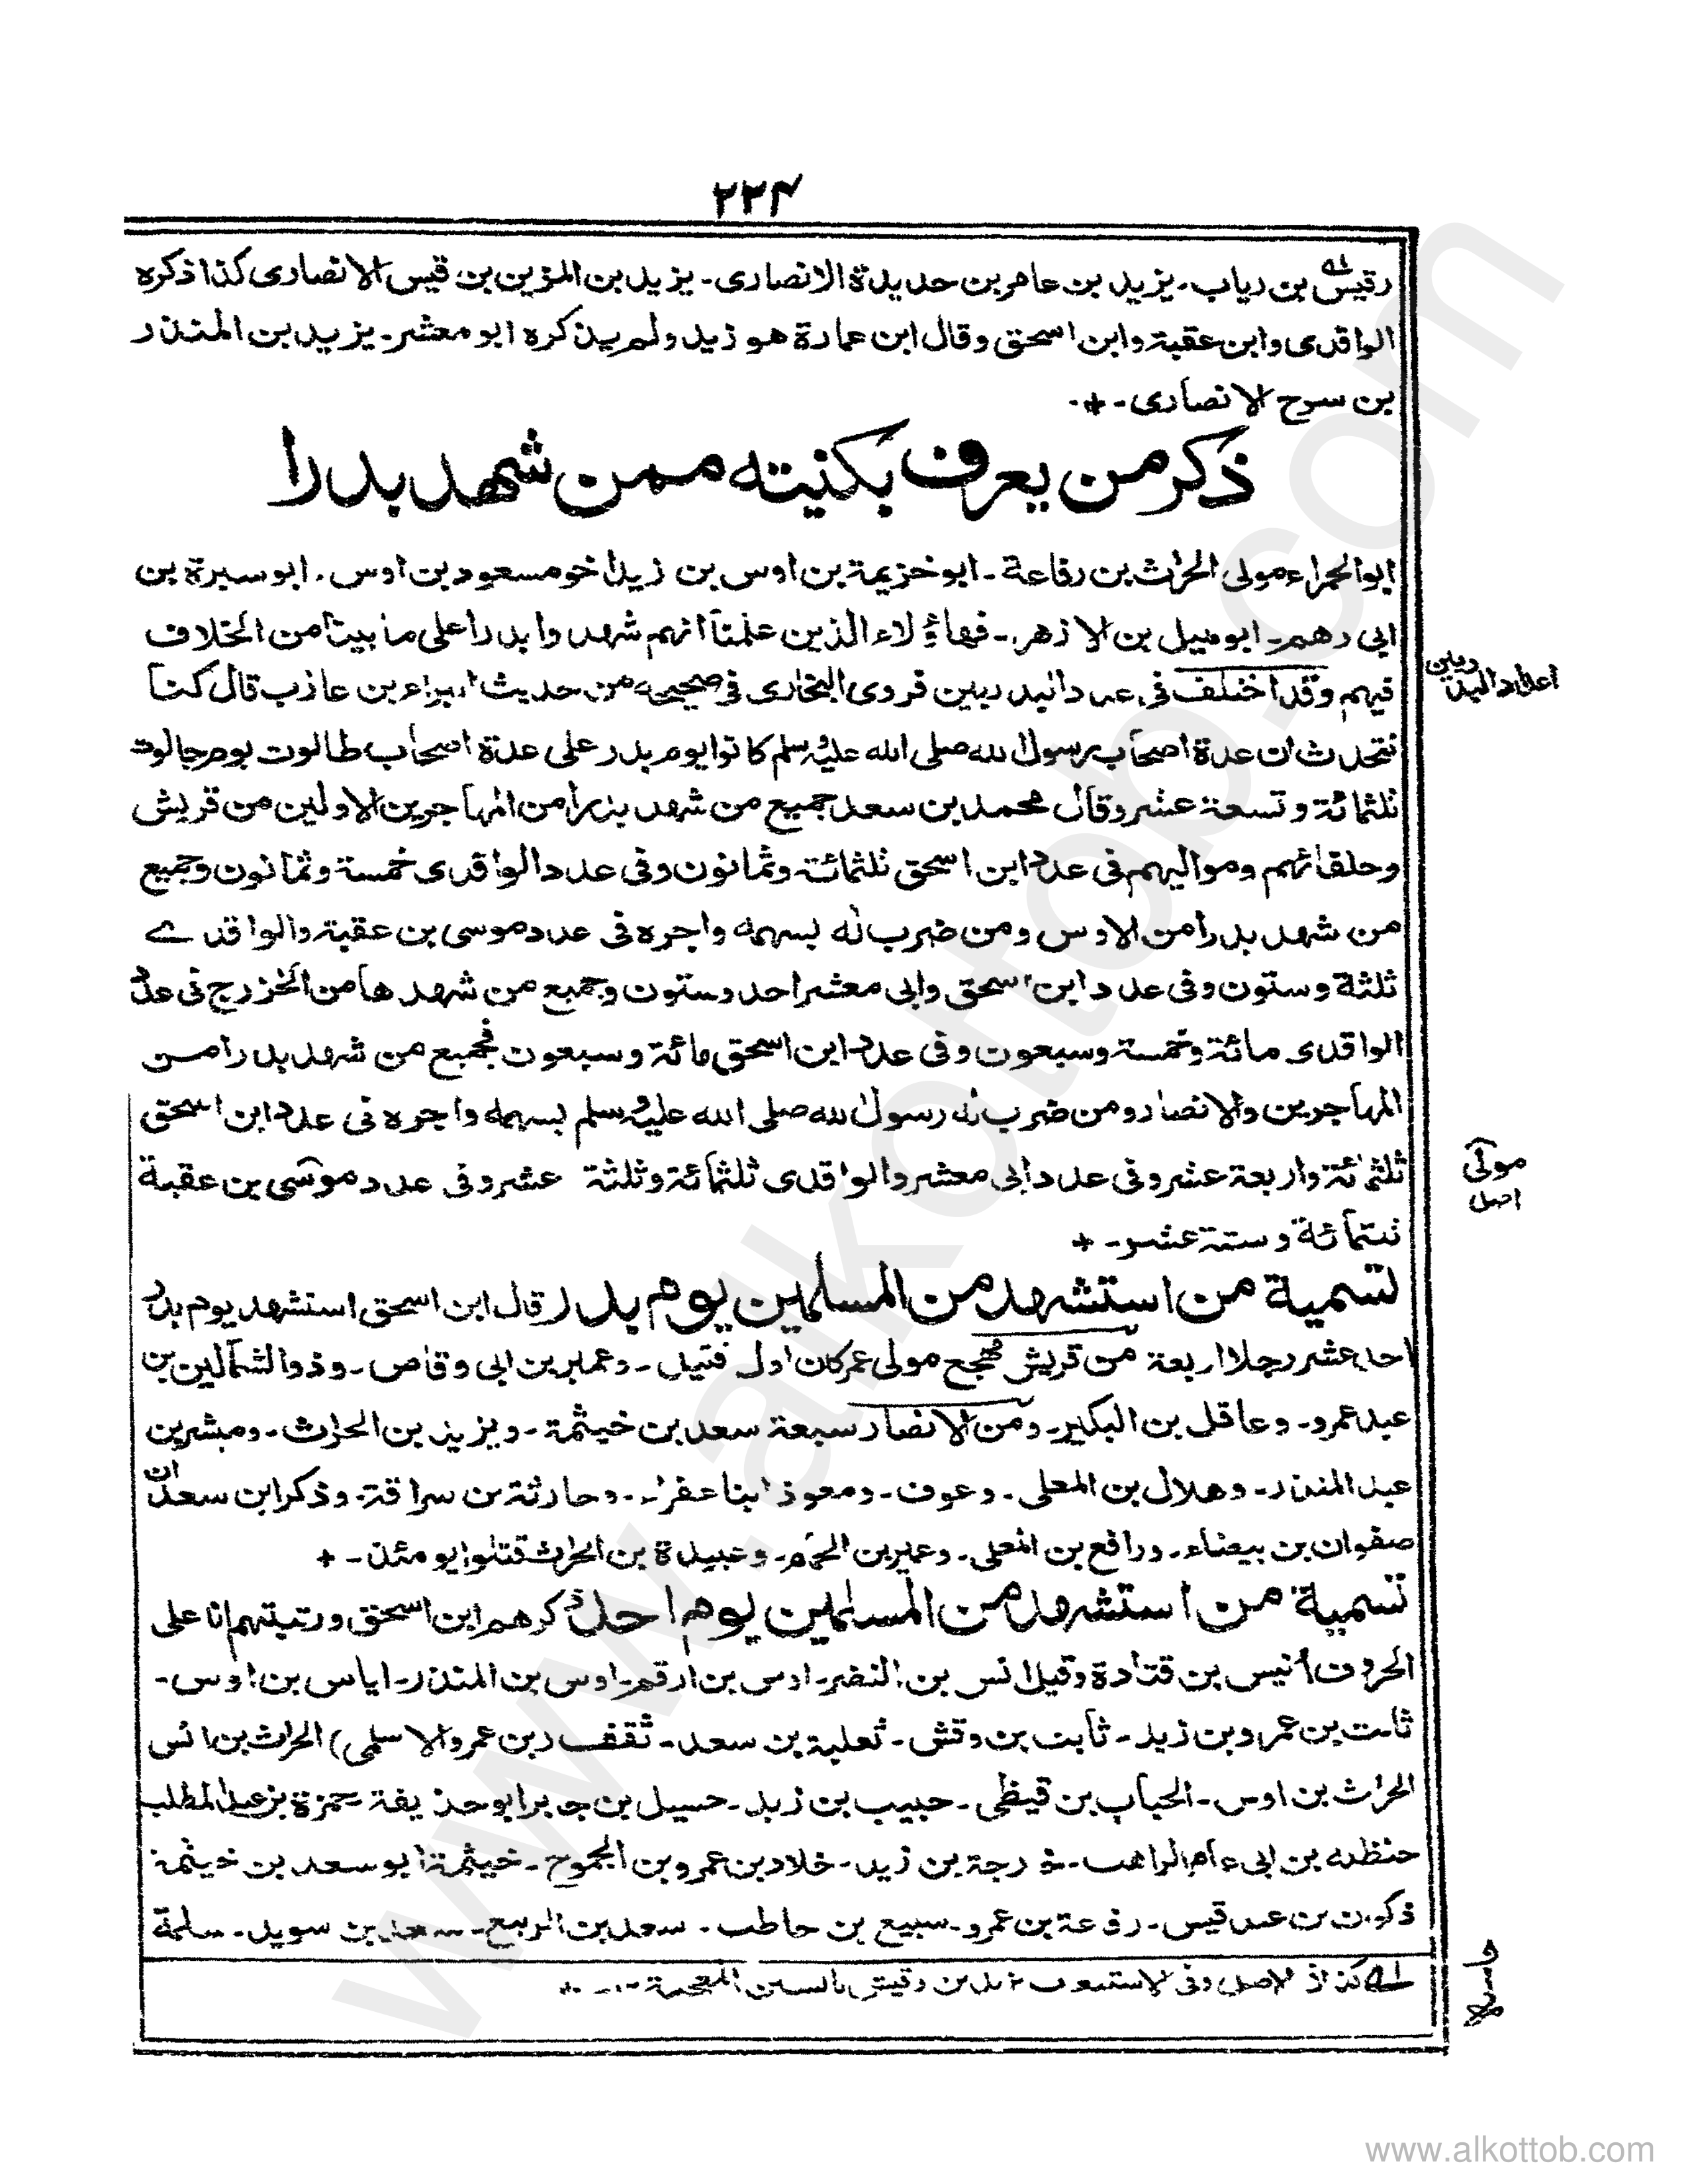 ۲۳۴
رقيس بن رياب۔ يزيد بن عامر بن حديدة الانصارى۔ يزيد بن المزين بن قيس الانصارى كذا ذكره
الواقدى وابن عقبة وابن اسحق وقال ابن عمارة هو زيد ولم يذكره ابو معشر۔ يزيد بن المنذر
بن سرح الانصارى۔ +۔
ذكر من يعرف بكنيته ممن شهد بدرا
ابوالحمراء مولى الحرث بن رفاعة۔ ابو خزيمة بن اوس بن زيد اخو مسعود بن اوس۔ ابو سبرة بن
ابى رهم۔ ابو مليل بن الازهر۔ فهاؤلاء الذين علمنا انهم شهدوا بدرا على ما بينا من الخلاف
فيهم وقد اختلف فى عدد البدريين فروى البخارى فى صحيحه من حديث البراء بن عازب قال كنا
نتحدث ان عدة اصحاب رسول الله صلى الله عليه وسلم كانوا يوم بدر على عدة اصحاب طالوت يوم جالوت
ثلثمائة وتسعة عشر وقال محمد بن سعد جميع من شهد بدرا من المهاجرين الاولين من قريش
وحلفائهم ومواليهم فى عدد ابن اسحق ثلثمائة وثمانون وفى عدد الواقدى خمسة وثمانون وجميع
من شهد بدرا من الاوس ومن ضرب له بسهمه واجره فى عدد موسى بن عقبة والواقدے
ثلثة وستون وفى عدد ابن اسحق وابى معشر احد وستون وجميع من شهدها من الخزرج فى عدد
الواقدى مائة وخمسة وسبعون وفى عدد ابن اسحق مائة وسبعون فجميع من شهد بدرا من
المهاجرين والانصار ومن ضرب له رسول الله صلى الله عليه وسلم بسهمه واجره فى عدد ابن اسحق
ثلثمائة واربعة عشر وفى عدد ابى معشر والواقدى ثلثمائة وثلثة عشر وفى عدد موسى بن عقبة
ثلثمائة وستة عشر۔ +
تسمية من استشهد من المسلمين يوم بدر قال ابن اسحق استشهد يوم بدر
احد عشر رجلا اربعة من قريش مهجع مولى عمر كان اول قتيل۔ وعمير بن ابى وقاص۔ وذوالشمالين بن
عبد عمرو۔ وعاقل بن البكير۔ ومن الانصار سبعة سعد بن خيثمة۔ ويزيد بن الحرث۔ ومبشر بن
عبد المنذر۔ وهلال بن المعلى۔ وعوف۔ ومعوذ ابنا عفراء۔ وحارثة بن سراقة۔ وذكر ابن سعد ان
صفوان بن بيضاء۔ ورافع بن المعلى۔ وعمير بن الحمام۔ وعبيدة بن الحرث قتلوا يومئذ۔ +
تسمية من استشهد من المسلمين يوم احد ذكرهم ابن اسحق ورتبتهم انا على
الحروف أنيس بن قتادة وقيل انس بن النضر۔ اوس بن ارقم۔ اوس بن المنذر۔ اياس بن اوس۔
ثابت بن عمرو بن زيد۔ ثابت بن وقش۔ ثعلبة بن سعد۔ ثقف (بن عمرو الاسلمى) الحرث بن انس
الحرث بن اوس۔ الحباب بن قيظى۔ حبيب بن زيد۔ حسيل بن جابر ابو حذيفة حمزة بن عبدالمطلب
حنظلة بن ابى عامر الراهب۔ خارجة بن زيد۔ خلاد بن عمرو بن الجموح۔ خيثمة ابو سعد بن خيثمة
ذكوان بن عبد قيس۔ رفاعة بن عمرو۔ سبيع بن حاطب۔ سعد بن الربيع۔ سعد بن سويد۔ سلمة
لے كذا فى الاصل وفى الاستيعاب يزيد بن رقيش بالشين المعجمة۔
اعداد البدريين
مولى
اصل
www.alkottob.com
www.alkottob.com